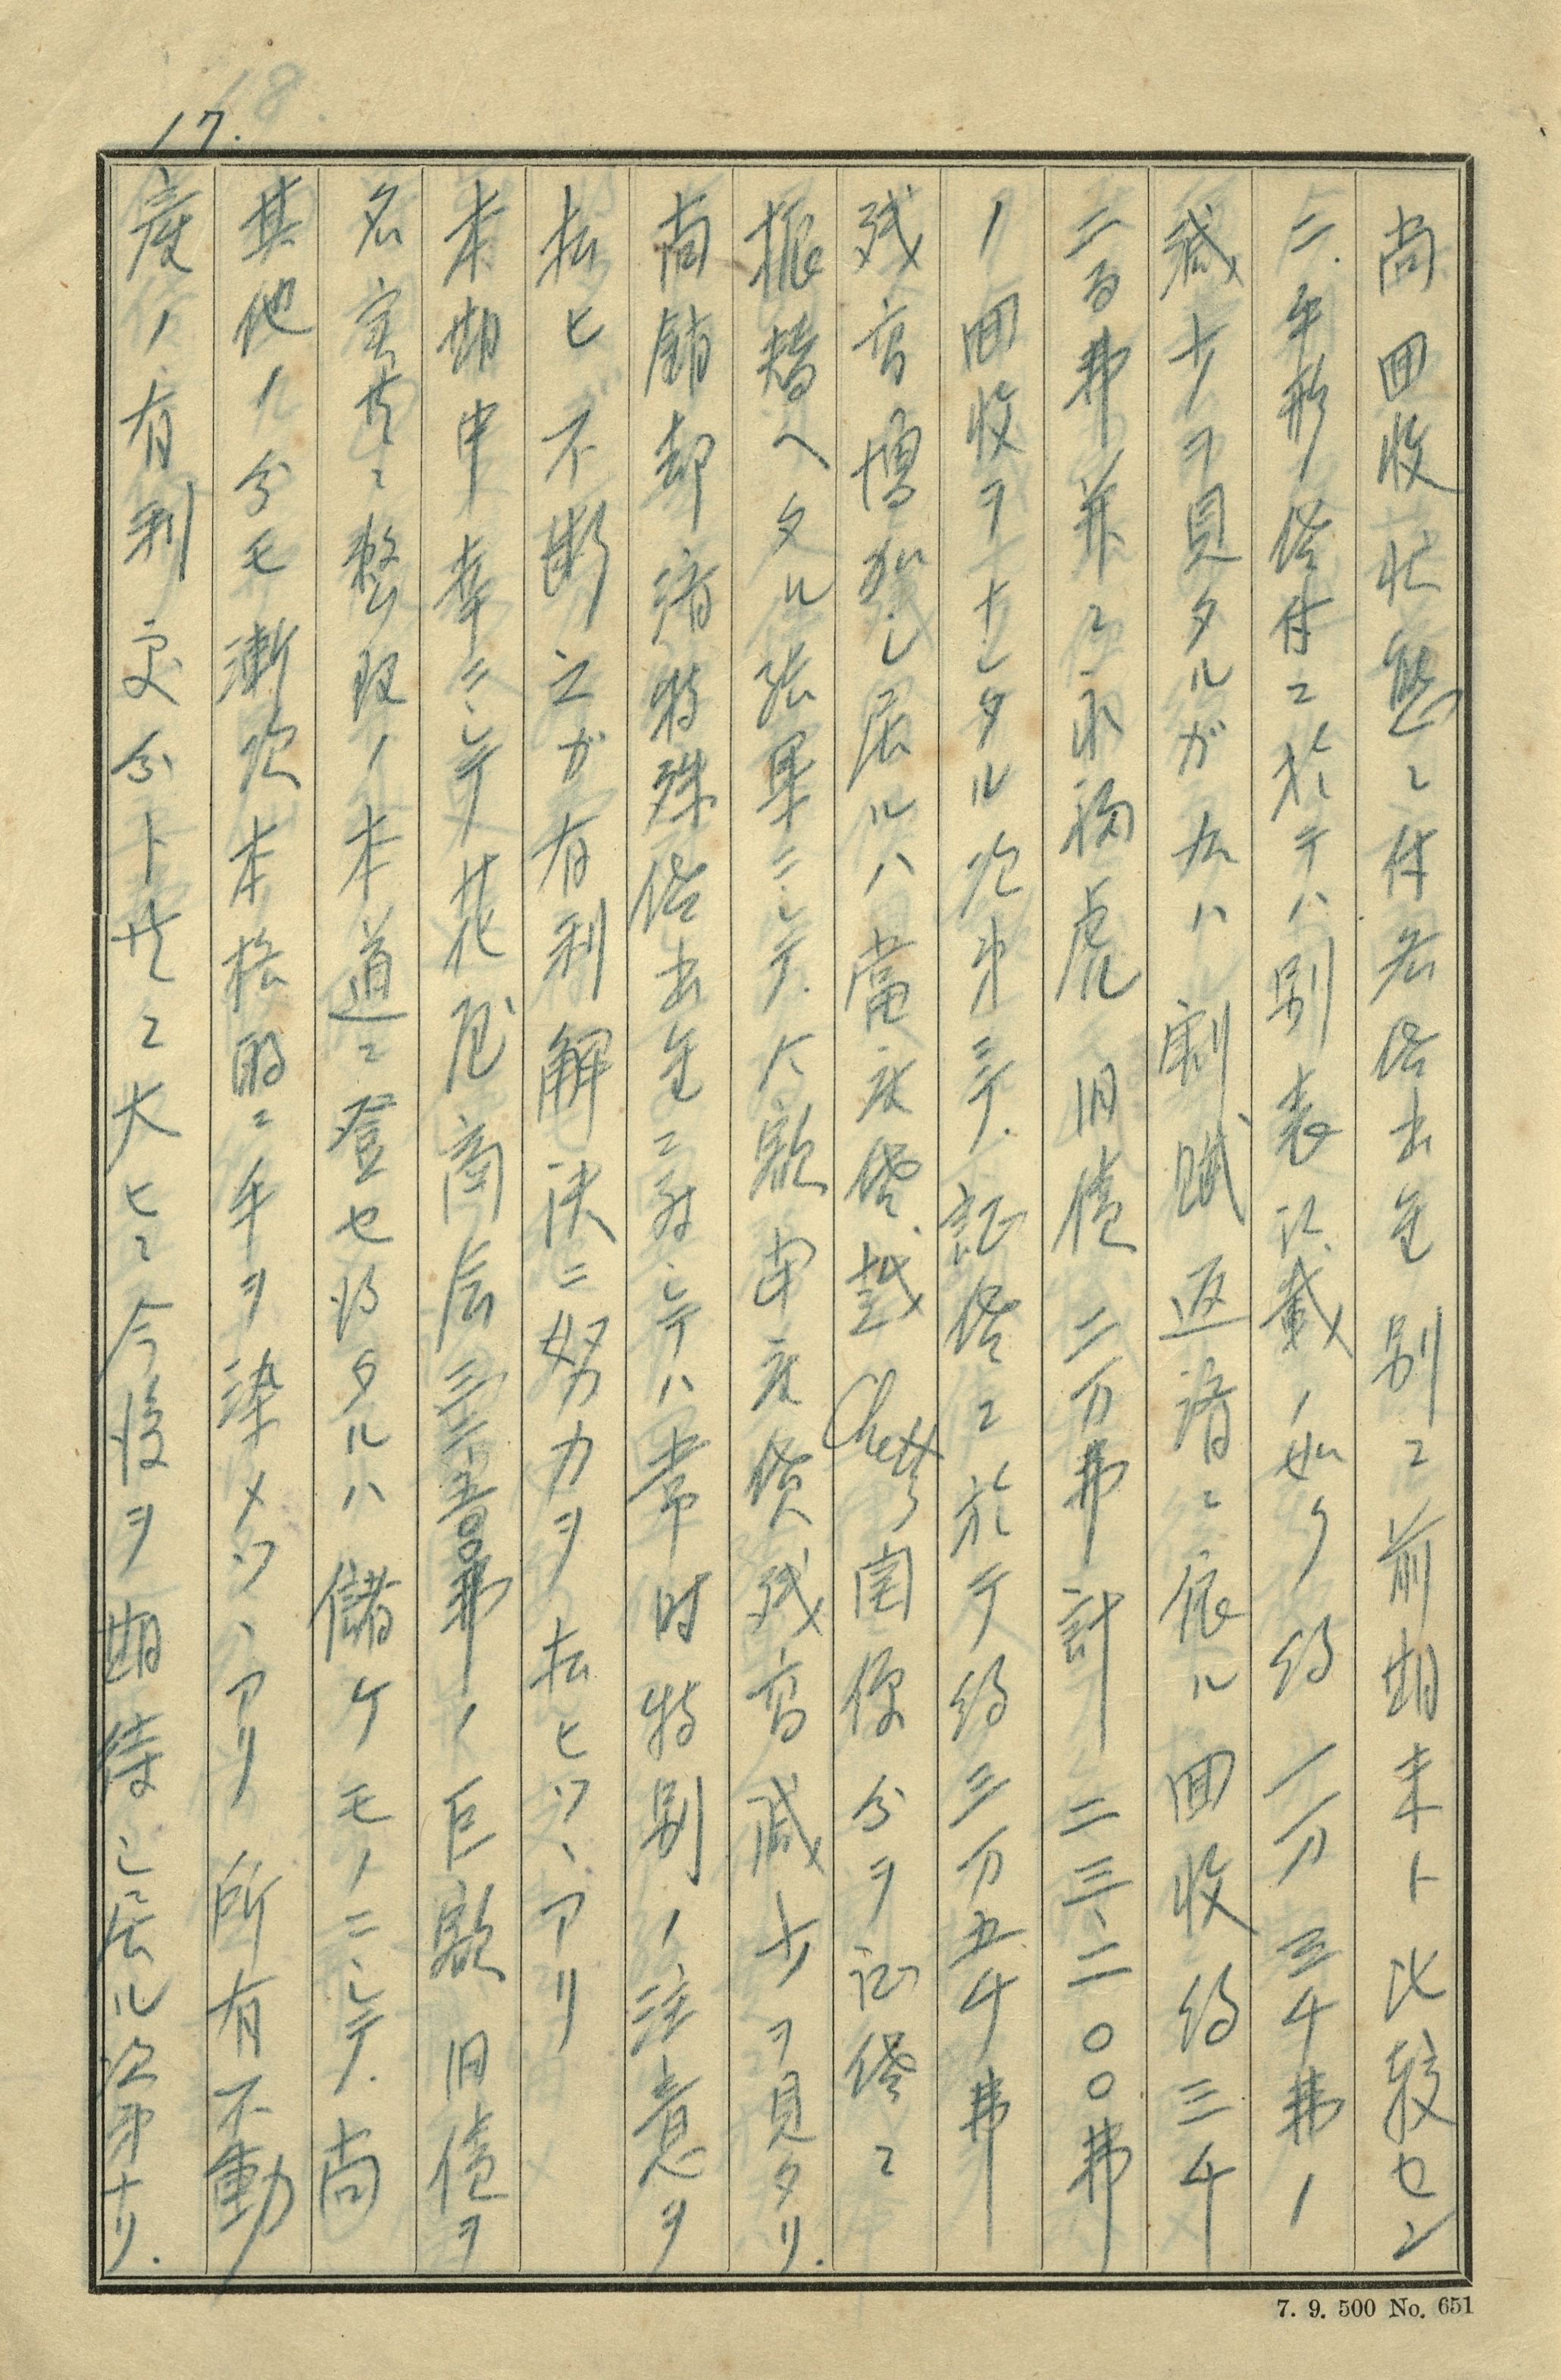 18.
17.
尚回收状態ニ付名貸出金別ニ前期末ト比較セン
ニ、手形貸付ニ於テハ別表記載ノ如ク約一万三千弗ノ
減少ヲ見タルガ右ハ割賦返済ニ依ル回收約三千
二百弗並ニ永福虎旧債二万弗計二三、二〇〇弗
ノ回收ヲナシタル次第ニテ、証貸ニ於テ約三万五千弗
残高増加シ居ルハ當座貸越Chetty関係分ヲ証貸ニ
振替ヘタル結果ニシテ、尺款當座貸残高減少ヲ見タリ.
尚銷却済特殊貸出金ニ対シテハ常時特別ノ注意ヲ
払ヒ不断之ガ有利解決ニ努力ヲ払ヒツヽアリ
本期中幸ニシテ花屋商会三二五〇〇弗ノ巨額旧債ヲ
名実共ニ整理ノ本道ニ登セ得タルハ儲ケモノニシテ、尚
其他ノ分モ漸次本格的ニ手ヲ染メツヽアリ所有不動
産ノ有利処分ト共ニ大ヒニ今後ヲ期待シ居ル次第ナリ.
7. 9. 500 No. 651